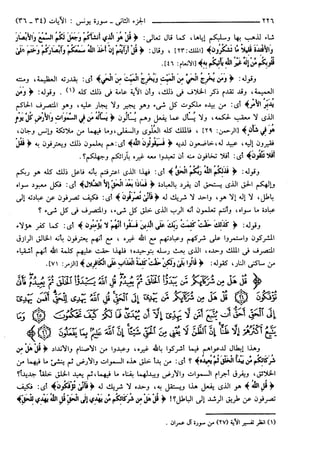 ٢٢٦ الجزء الثاني - سورة يونس : الآيات (٣٤ ـ ٣٦)
شاء لذهب بها وسلبكم إياها، كما قال تعالى: ﴿قُلْ هُوَ الَّذِي أَنشَأَكُمْ وَجَعَلَ لَكُمُ السَّمْعَ وَالْأَبْصَارَ
وَالْأَفْئِدَةَ قَلِيلًا مَّا تَشْكُرُونَ﴾ [الملك: ٢٣] ، وقال: ﴿قُلْ أَرَأَيْتُمْ إِنْ أَخَذَ اللَّهُ سَمْعَكُمْ وَأَبْصَارَكُمْ وَخَتَمَ عَلَى
قُلُوبِكُم مَّنْ إِلَهٌ غَيْرُ اللَّهِ يَأْتِيكُم بِهِ﴾ [الأنعام: ٤٦].
وقوله: ﴿وَمَن يُخْرِجُ الْحَيَّ مِنَ الْمَيِّتِ وَيُخْرِجُ الْمَيِّتَ مِنَ الْحَيِّ﴾ أي: بقدرته العظيمة، ومنته
العميمة، وقد تقدم ذكر الخلاف في ذلك، وأن الآية عامة في ذلك كله (١) . وقوله: ﴿وَمَن
يُدَبِّرُ الْأَمْرَ﴾ أي: من بيده ملكوت كل شيء وهو يجير ولا يجار عليه، وهو المتصرف الحاكم
الذي لا معقب لحكمه، ولا يسأل عما يفعل وهم يسألون ﴿يَسْأَلُهُ مَن فِي السَّمَاوَاتِ وَالْأَرْضِ كُلَّ يَوْمٍ
هُوَ فِي شَأْنٍ﴾ [الرحمن: ٢٩] ، فالملك كله العلوي والسفلي، وما فيهما من ملائكة وإنس وجان،
فقيرون إليه، عبيد له، خاضعون لديه ﴿فَسَيَقُولُونَ اللَّهُ﴾ أي: هم يعلمون ذلك ويعترفون به ﴿فَقُلْ
أَفَلَا تَتَّقُونَ﴾ أي: أفلا تخافون منه أن تعبدوا معه غيره بآرائكم وجهلكم؟.
وقوله: ﴿فَذَلِكُمُ اللَّهُ رَبُّكُمُ الْحَقُّ﴾ أي: فهذا الذي اعترفتم بأنه فاعل ذلك كله هو ربكم
وإلهكم الحق الذي يستحق أن يفرد بالعبادة ﴿فَمَاذَا بَعْدَ الْحَقِّ إِلَّا الضَّلَالُ﴾ أي: فكل معبود سواه
باطل، لا إله إلا هو، واحد لا شريك له ﴿فَأَنَّى تُصْرَفُونَ﴾ أي: فكيف تصرفون عن عبادته إلى
عبادة ما سواه، وأنتم تعلمون أنه الرب الذي خلق كل شيء، والمتصرف في كل شيء ؟
وقوله: ﴿كَذَلِكَ حَقَّتْ كَلِمَتُ رَبِّكَ عَلَى الَّذِينَ فَسَقُوا أَنَّهُمْ لَا يُؤْمِنُونَ﴾ أي: كما كفر هؤلاء
المشركون واستمروا على شركهم وعبادتهم مع الله غيره ، مع أنهم يعترفون بأنه الخالق الرازق
المتصرف في الملك وحده، الذي بعث رسله بتوحيده؛ فلهذا حقت عليهم كلمة الله أنهم أشقياء
من ساكني النار، كقوله: ﴿قَالُوا بَلَى وَلَكِنْ حَقَّتْ كَلِمَةُ الْعَذَابِ عَلَى الْكَافِرِينَ﴾ [الزمر: ٧١].
﴿قُلْ هَلْ مِن شُرَكَائِكُم مَّن يَبْدَأُ الْخَلْقَ ثُمَّ يُعِيدُهُ قُلِ اللَّهُ يَبْدَأُ الْخَلْقَ ثُمَّ يُعِيدُهُ فَأَنَّى
تُؤْفَكُونَ ﴿٣٤﴾ قُلْ هَلْ مِن شُرَكَائِكُم مَّن يَهْدِي إِلَى الْحَقِّ قُلِ اللَّهُ يَهْدِي لِلْحَقِّ أَفَمَن يَهْدِي
إِلَى الْحَقِّ أَحَقُّ أَن يُتَّبَعَ أَمَّن لَّا يَهِدِّي إِلَّا أَن يُهْدَى فَمَا لَكُمْ كَيْفَ تَحْكُمُونَ ﴿٣٥﴾ وَمَا
يَتَّبِعُ أَكْثَرُهُمْ إِلَّا ظَنًّا إِنَّ الظَّنَّ لَا يُغْنِي مِنَ الْحَقِّ شَيْئًا إِنَّ اللَّهَ عَلِيمٌ بِمَا يَفْعَلُونَ ﴿٣٦﴾
وهذا إبطال لدعواهم فيما أشركوا بالله غيره، وعبدوا من الأصنام والأنداد ﴿قُلْ هَلْ مِن
شُرَكَائِكُم مَّن يَبْدَأُ الْخَلْقَ ثُمَّ يُعِيدُهُ﴾ ؟ أي: من بدأ خلق هذه السموات والأرض ثم ينشئ ما فيهما من
الخلائق، ويفرق أجرام السموات والأرض ويبدلهما بفناء ما فيهما، ثم يعيد الخلق خلقاً جديداً؟
﴿قُلِ اللَّهُ﴾ هو الذي يفعل هذا ويستقل به، وحده لا شريك له ﴿فَأَنَّى تُؤْفَكُونَ﴾ أي: فكيف
تصرفون عن طريق الرشد إلى الباطل؟! ﴿قُلْ هَلْ مِن شُرَكَائِكُم مَّن يَهْدِي إِلَى الْحَقِّ قُلِ اللَّهُ يَهْدِي لِلْحَقِّ﴾
(١) انظر تفسير الآية (٢٧) من سورة آل عمران .